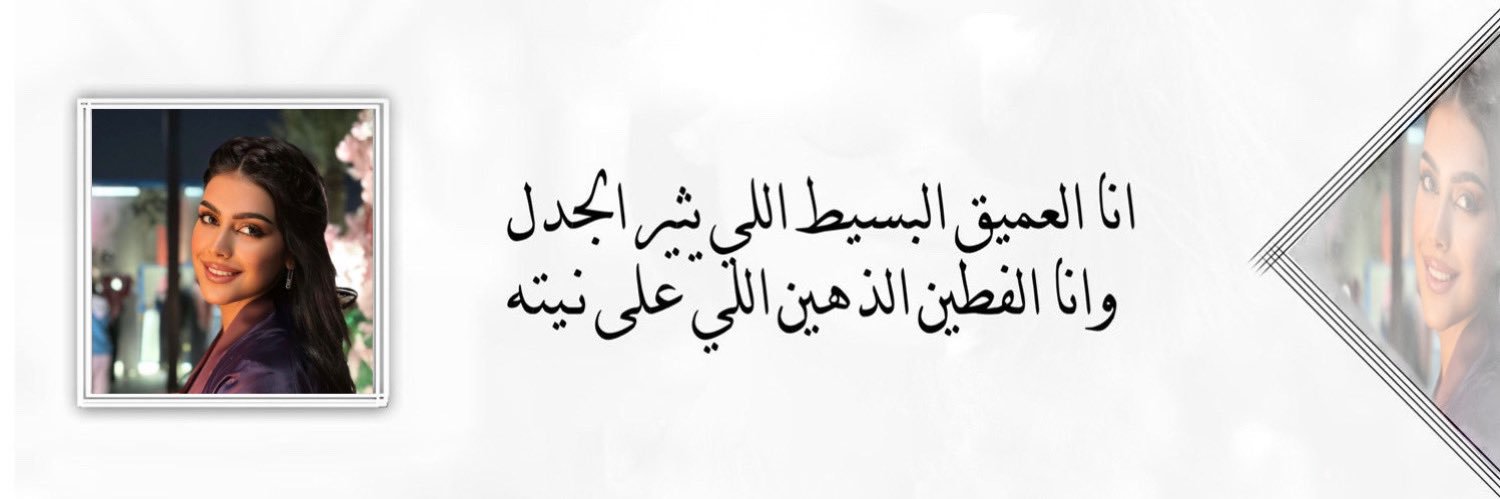 انا العميق البسيط اللي يثير الجدل
وانا الفطين الذهين اللي على نيته